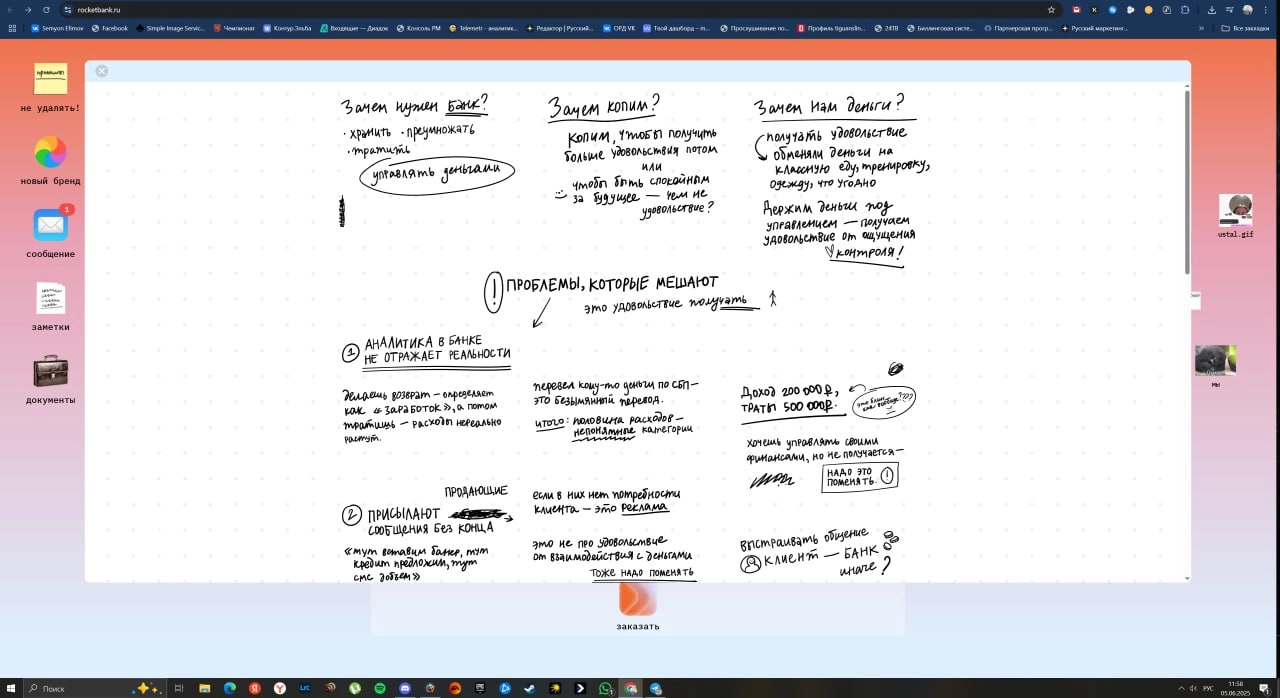 rocketbank.ru
Semyon Efimov
Facebook
Simple Image Servic...
Чемпионат
Контур.Эльба
Входящие — Диадок
Консоль РМ
Telemetr - аналитик...
Редактор | Русский...
ОРД VK
Твой дашборд – m...
Прослушивание по...
Профиль tiguanslin...
24TB
Биллинговая систе...
Партнерская прогр...
Русский маркетинг...
Все закладки
не удалять!
новый бренд
1
сообщение
заметки
документы
ustal.gif
мы
Зачем нужен банк?
· хранить · преумножать
· тратить
управлять деньгами
Зачем копим?
Копим, чтобы получить
больше удовольствия потом
или
чтобы быть спокойным
за будущее — чем не
удовольствие?
Зачем нам деньги?
получать удовольствие
обменяли деньги на
классную еду, тренировку,
одежду, что угодно
Держим деньги под
управлением — получаем
удовольствие от ощущения
контроля!
! ПРОБЛЕМЫ, КОТОРЫЕ МЕШАЮТ
это удовольствие получать
1 АНАЛИТИКА В БАНКЕ
НЕ ОТРАЖАЕТ РЕАЛЬНОСТИ
делаешь возврат — определяет
как «ЗАРАБОТОК», а потом
тратишь — расходы нереально
растут.
перевел кому-то деньги по СБП —
это безымянный перевод.
итого: половина расходов —
непонятные категории
Доход 200 000₽,
траты 500 000₽.
хочешь управлять своими
финансами, но не получается —
НАДО ЭТО
ПОМЕНЯТЬ. !
ПРОДАЮЩИЕ
2 ПРИСЫЛАЮТ
СООБЩЕНИЯ БЕЗ КОНЦА
«тут вставим банер, тут
кредит предложим, тут
смс добьем»
если в них нет потребности
клиента — это реклама
это не про удовольствие
от взаимодействия с деньгами
Тоже надо поменять
выстраивать общение
КЛИЕНТ — БАНК
иначе?
заказать
Поиск
РУС
11:58
05.06.2025